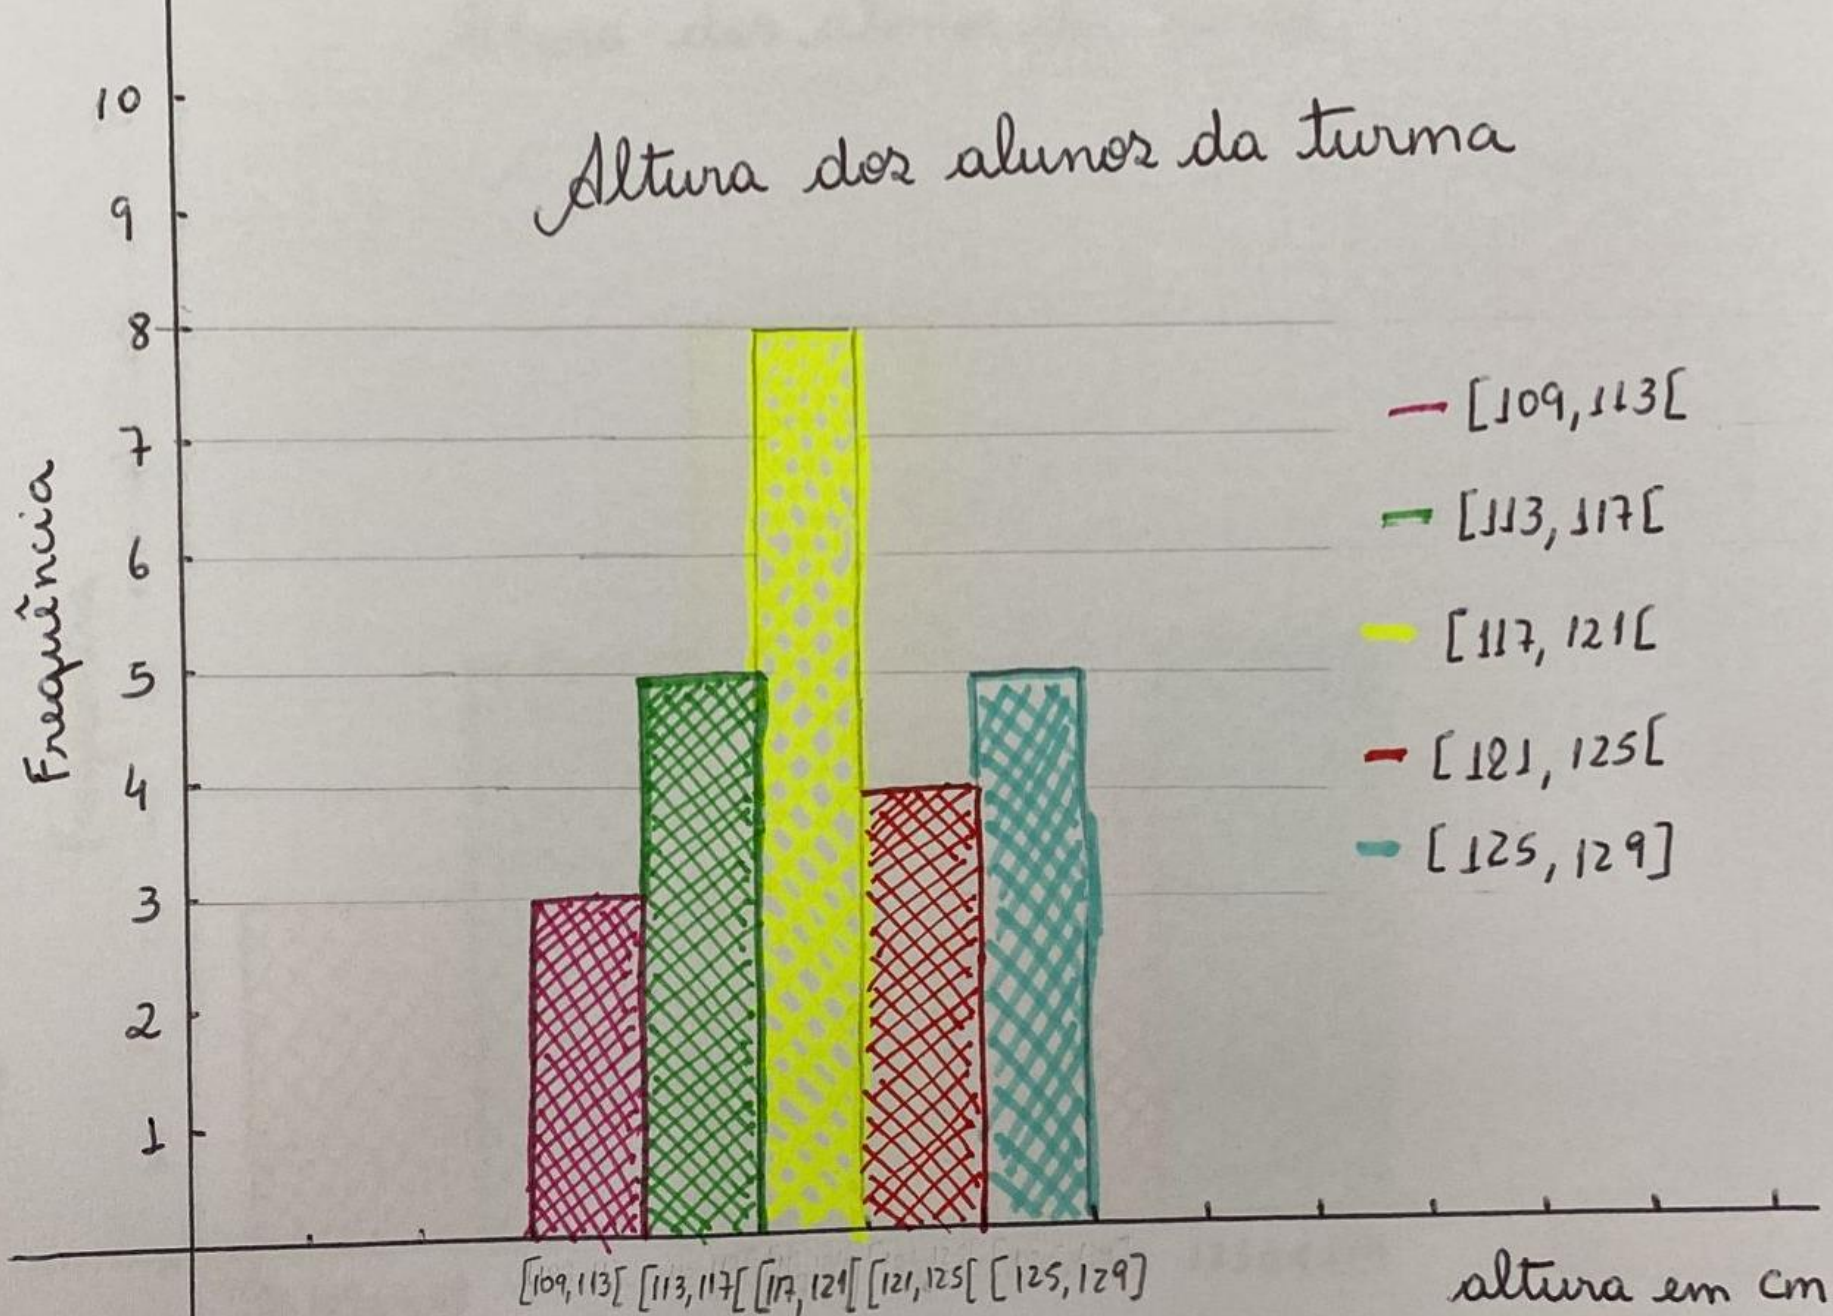 Altura dos alunos da turma
Frequência
10
9
8
7
6
5
4
3
2
1
[109,113[
[113,117[
[117,121[
[121,125[
[125,129]
[109,113[ [113,117[ [117,121[ [121,125[ [125,129]
altura em cm